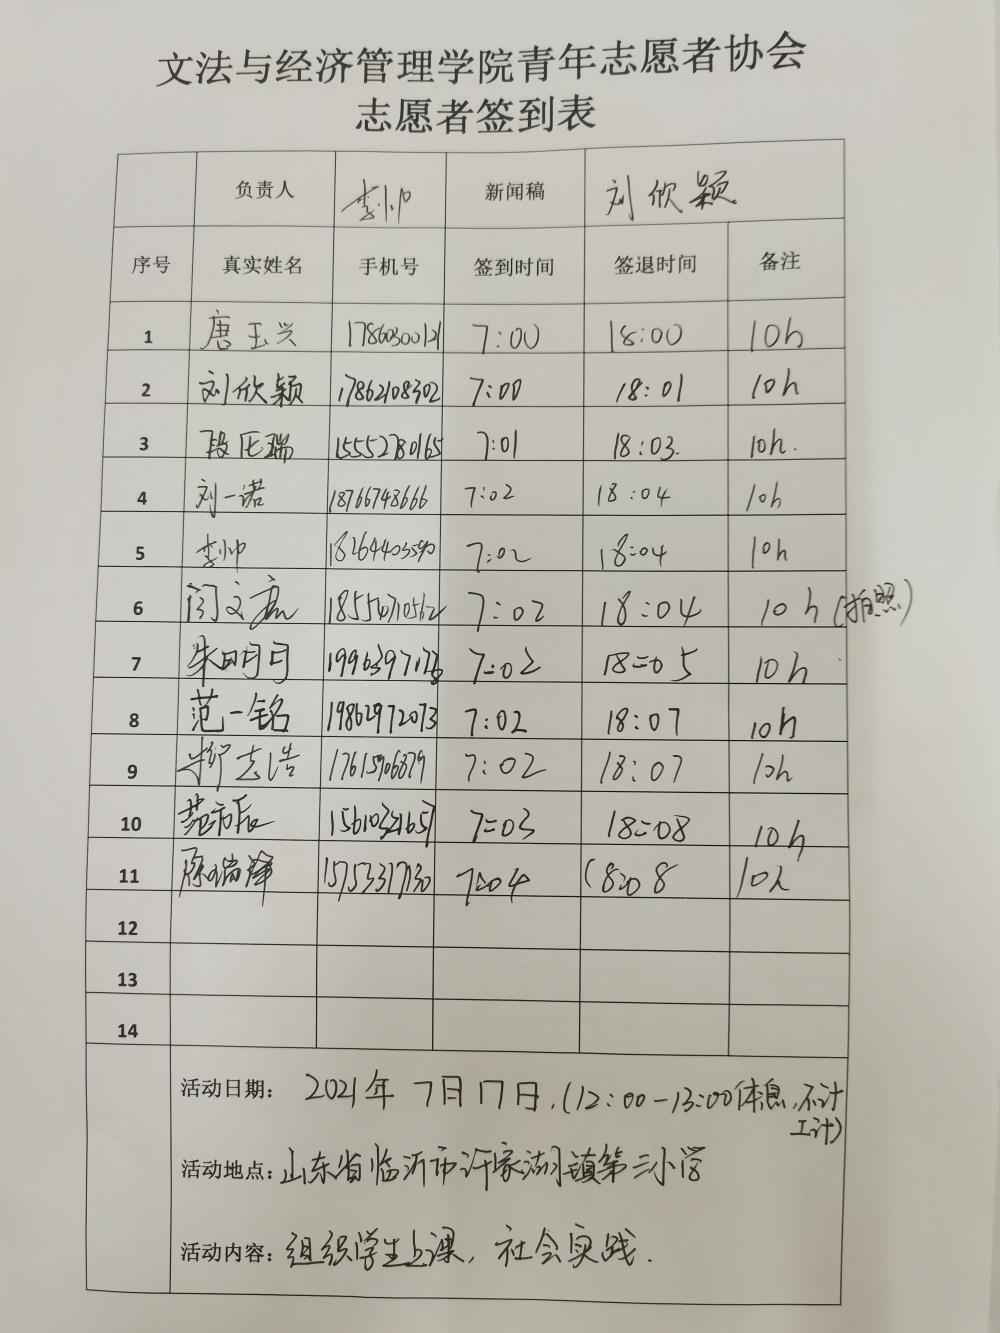 文法与经济管理学院青年志愿者协会
志愿者签到表
负责人 李帅 新闻稿 刘欣颖
序号 真实姓名 手机号 签到时间 签退时间 备注
1 唐玉兴 17860300121 7:00 18:00 10h
2 刘欣颖 17862108302 7:00 18:01 10h
3 段任瑞 15552780165 7:01 18:03. 10h.
4 刘一诺 18766748666 7:02 18:04 10h
5 李帅 18264403590 7:02 18:04 10h
6 闫文 18550710562 7:02 18:04 10h(拍照)
7 朱明月 7:02 18:05 10h
8 范一铭 19862972073 7:02 18:07 10h
9 志浩 17615906879 7:02 18:07 10h
10 15610321657 7:03 18:08 10h
11 陈瑞泽 15753317130 7:04 18:08 10h
12
13
14
活动日期: 2021年 7月17日.(12:00-13:00休息,不计
工计)
活动地点: 山东省临沂市许家湖镇第二小学
活动内容: 组织学生上课, 社会实践.